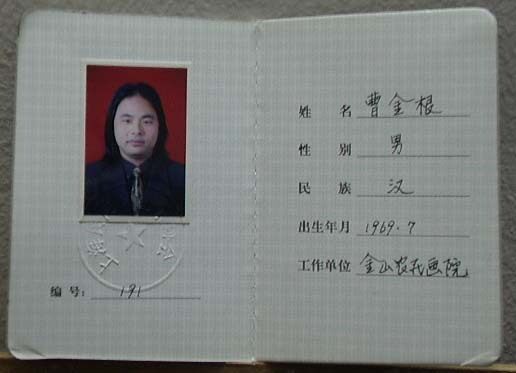 编号: 191
姓名 曹金根
性别 男
民族 汉
出生年月 1969.7
工作单位 金山农民画院